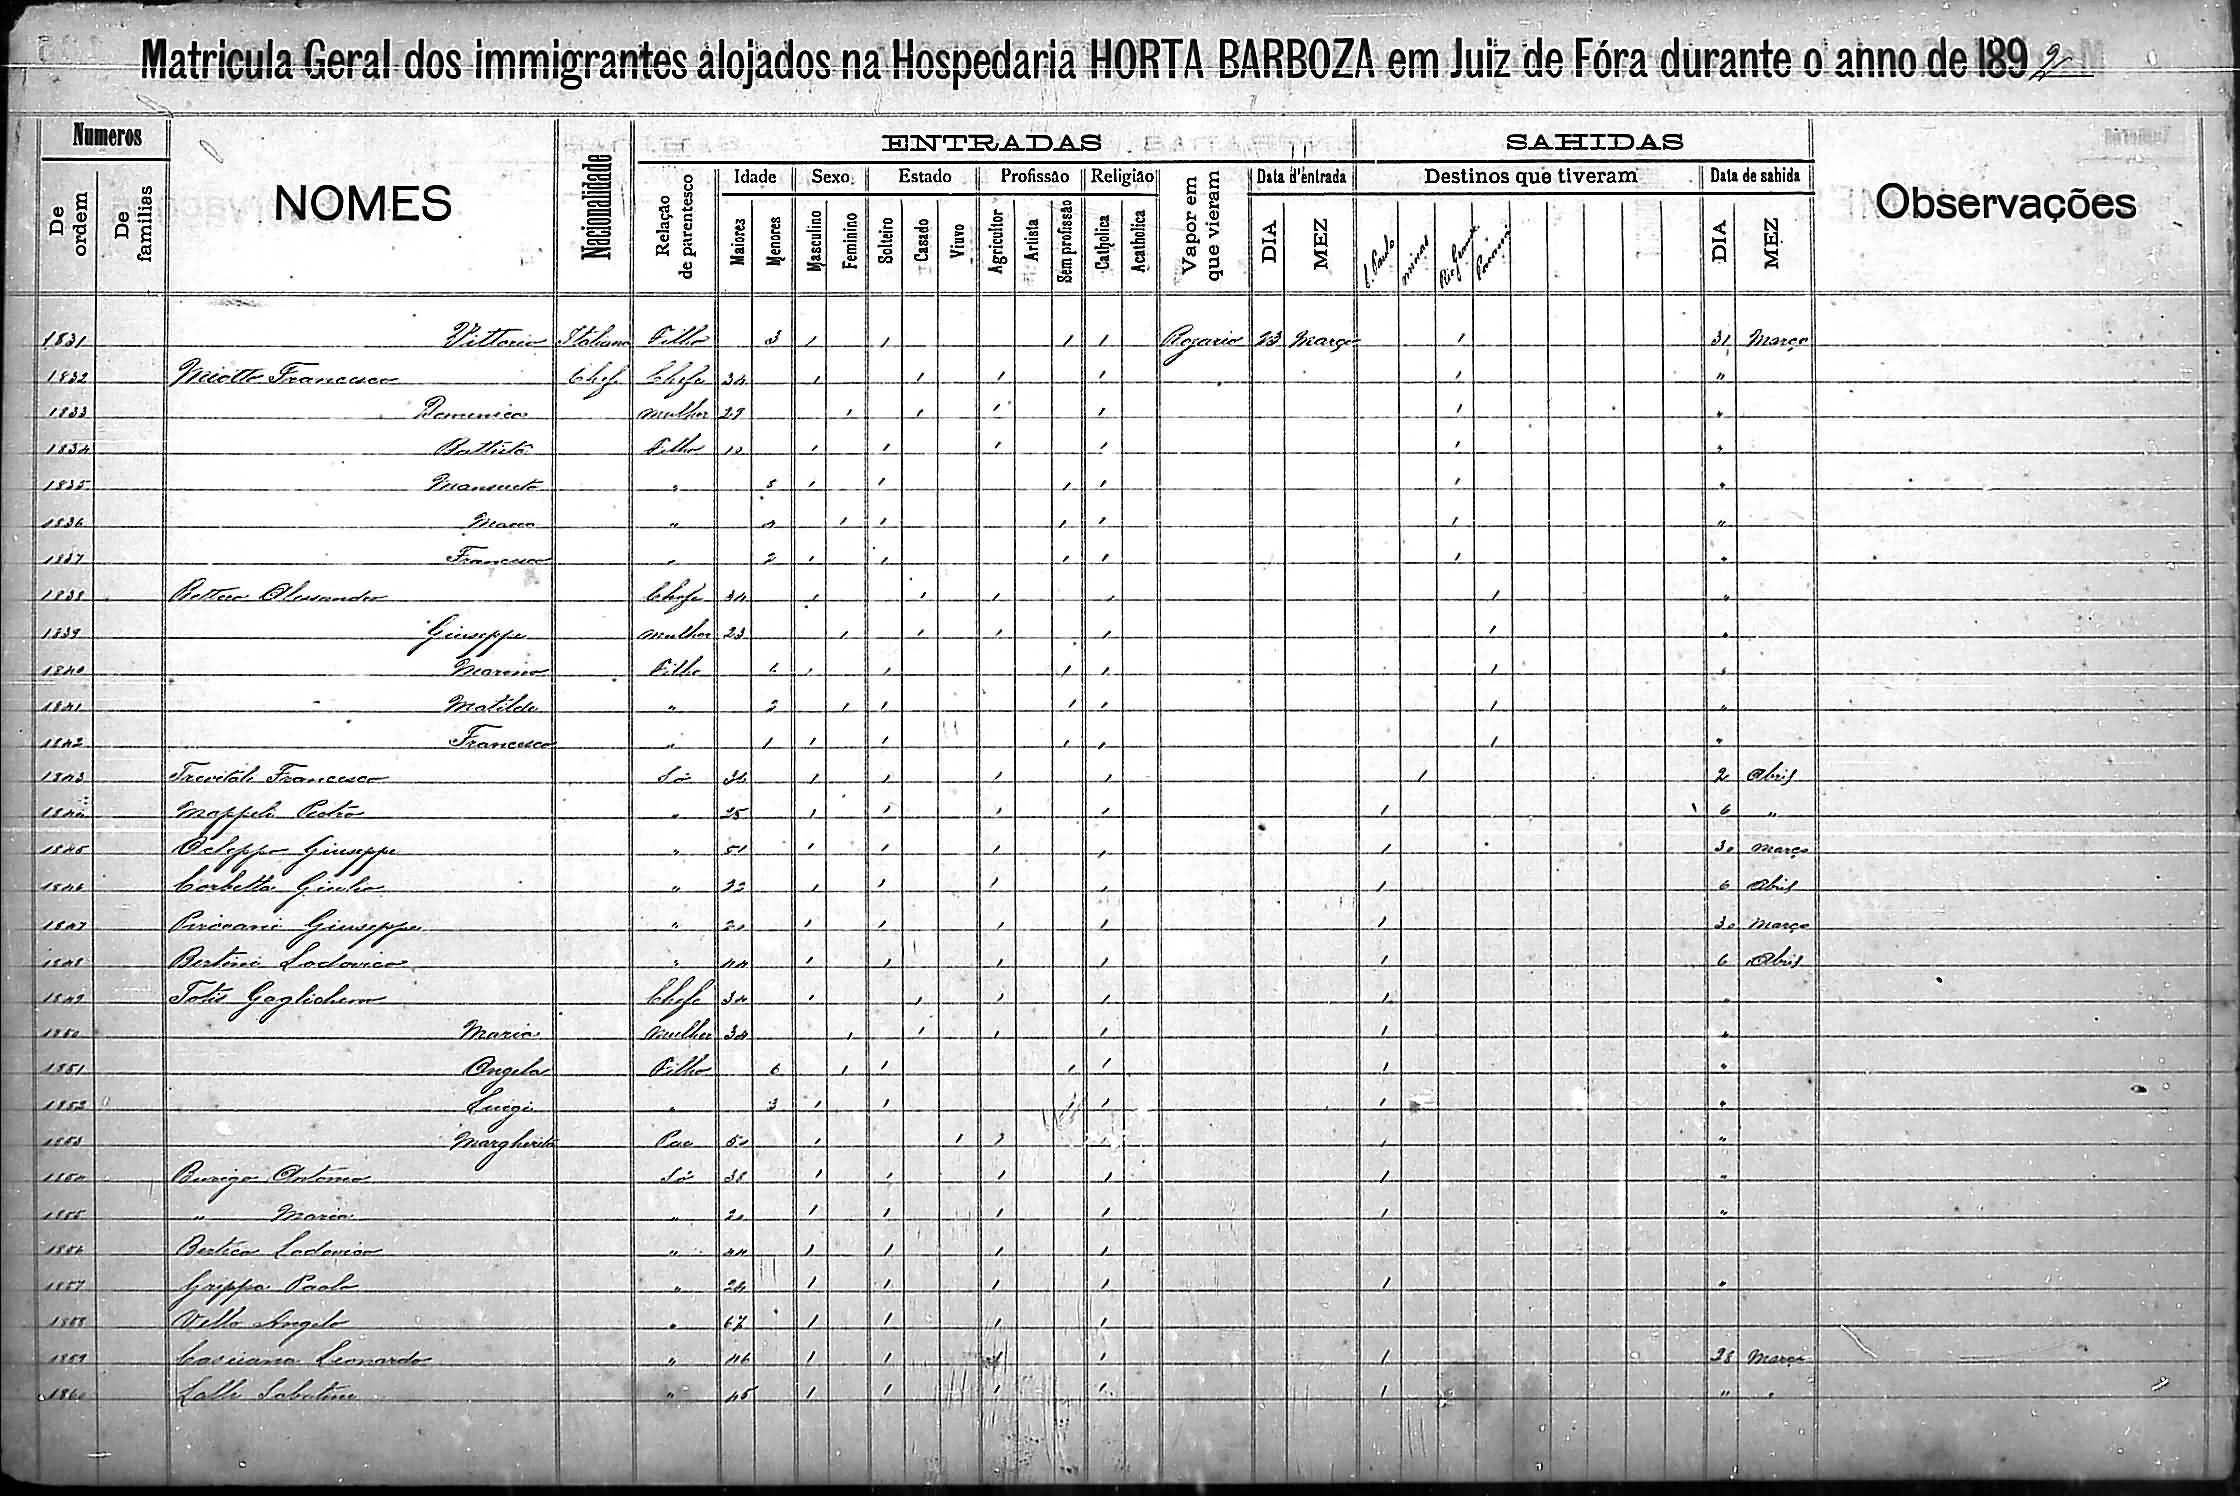 Matricula Geral dos immigrantes alojados na Hospedaria HORTA BARBOZA em Juiz de Fóra durante o anno de 1892
Numeros ENTRADAS SAHIDAS
De ordem De familias NOMES Nacionalidade Relação de parentesco Idade Sexo Estado Profissão Religião Vapor em que vieram Data d'entrada Destinos que tiveram Data de sahida Observações
Maiores Menores Masculino Feminino Solteiro Casado Viuvo Agricultor Artista Sem profissão Catholica Acatholica DIA MEZ S. Paulo Minas Rio Grande Paraná DIA MEZ
1831 Vittorio Italiana Filho 3 1 1 1 1 Rozario 23 Março 1 31 Março
1832 Miotto Francesco Chefe Chefe 34 1 1 1 1 1 "
1833 Domenica Mulher 29 1 1 1 1 1 "
1834 Battista Filho 10 1 1 1 1 1 "
1835 Mansueto " 5 1 1 1 1 1 "
1836 " 4 1 1 1 1 1 "
1837 Francesco " 2 1 1 1 1 1 "
1838 Alessandro Chefe 34 1 1 1 1 1 "
1839 Giuseppe Mulher 23 1 1 1 1 1 "
1840 Marino Filho 6 1 1 1 1 1 "
1841 Matilde " 2 1 1 1 1 1 "
1842 Francesco " 1 1 1 1 1 1 "
1843 Trevitali Francesco Só 36 1 1 1 1 1 2 Abril
1844 Mappeli Pedro " 25 1 1 1 1 1 6 "
1845 Giuseppe " 51 1 1 1 1 1 30 Março
1846 Corbetta Giulio " 22 1 1 1 1 1 6 Abril
1847 Pirovani Giuseppe " 20 1 1 1 1 1 30 Março
1848 Bertini Lodovico " 44 1 1 1 1 1 6 Abril
1849 Totis Goglielmo Chefe 34 1 1 1 1 1 "
1850 Maria Mulher 34 1 1 1 1 1 "
1851 Angela Filho 6 1 1 1 1 1 "
1852 Luigi " 3 1 1 1 1 1 "
1853 Margherita Pae 50 1 1 1 1 1 "
1854 Burigo Antonio Só 38 1 1 1 1 1 "
1855 " Maria " 20 1 1 1 1 1 "
1856 Lodovico " 44 1 1 1 1
1857 Grippa Paolo " 24 1 1 1 1 1 "
1858 Vello Angelo " 67 1 1 1 1
1859 Casciana Leonardo " 46 1 1 1 1 1 28 Março
1860 Lalli Sabatino " 45 1 1 1 1 1 " "